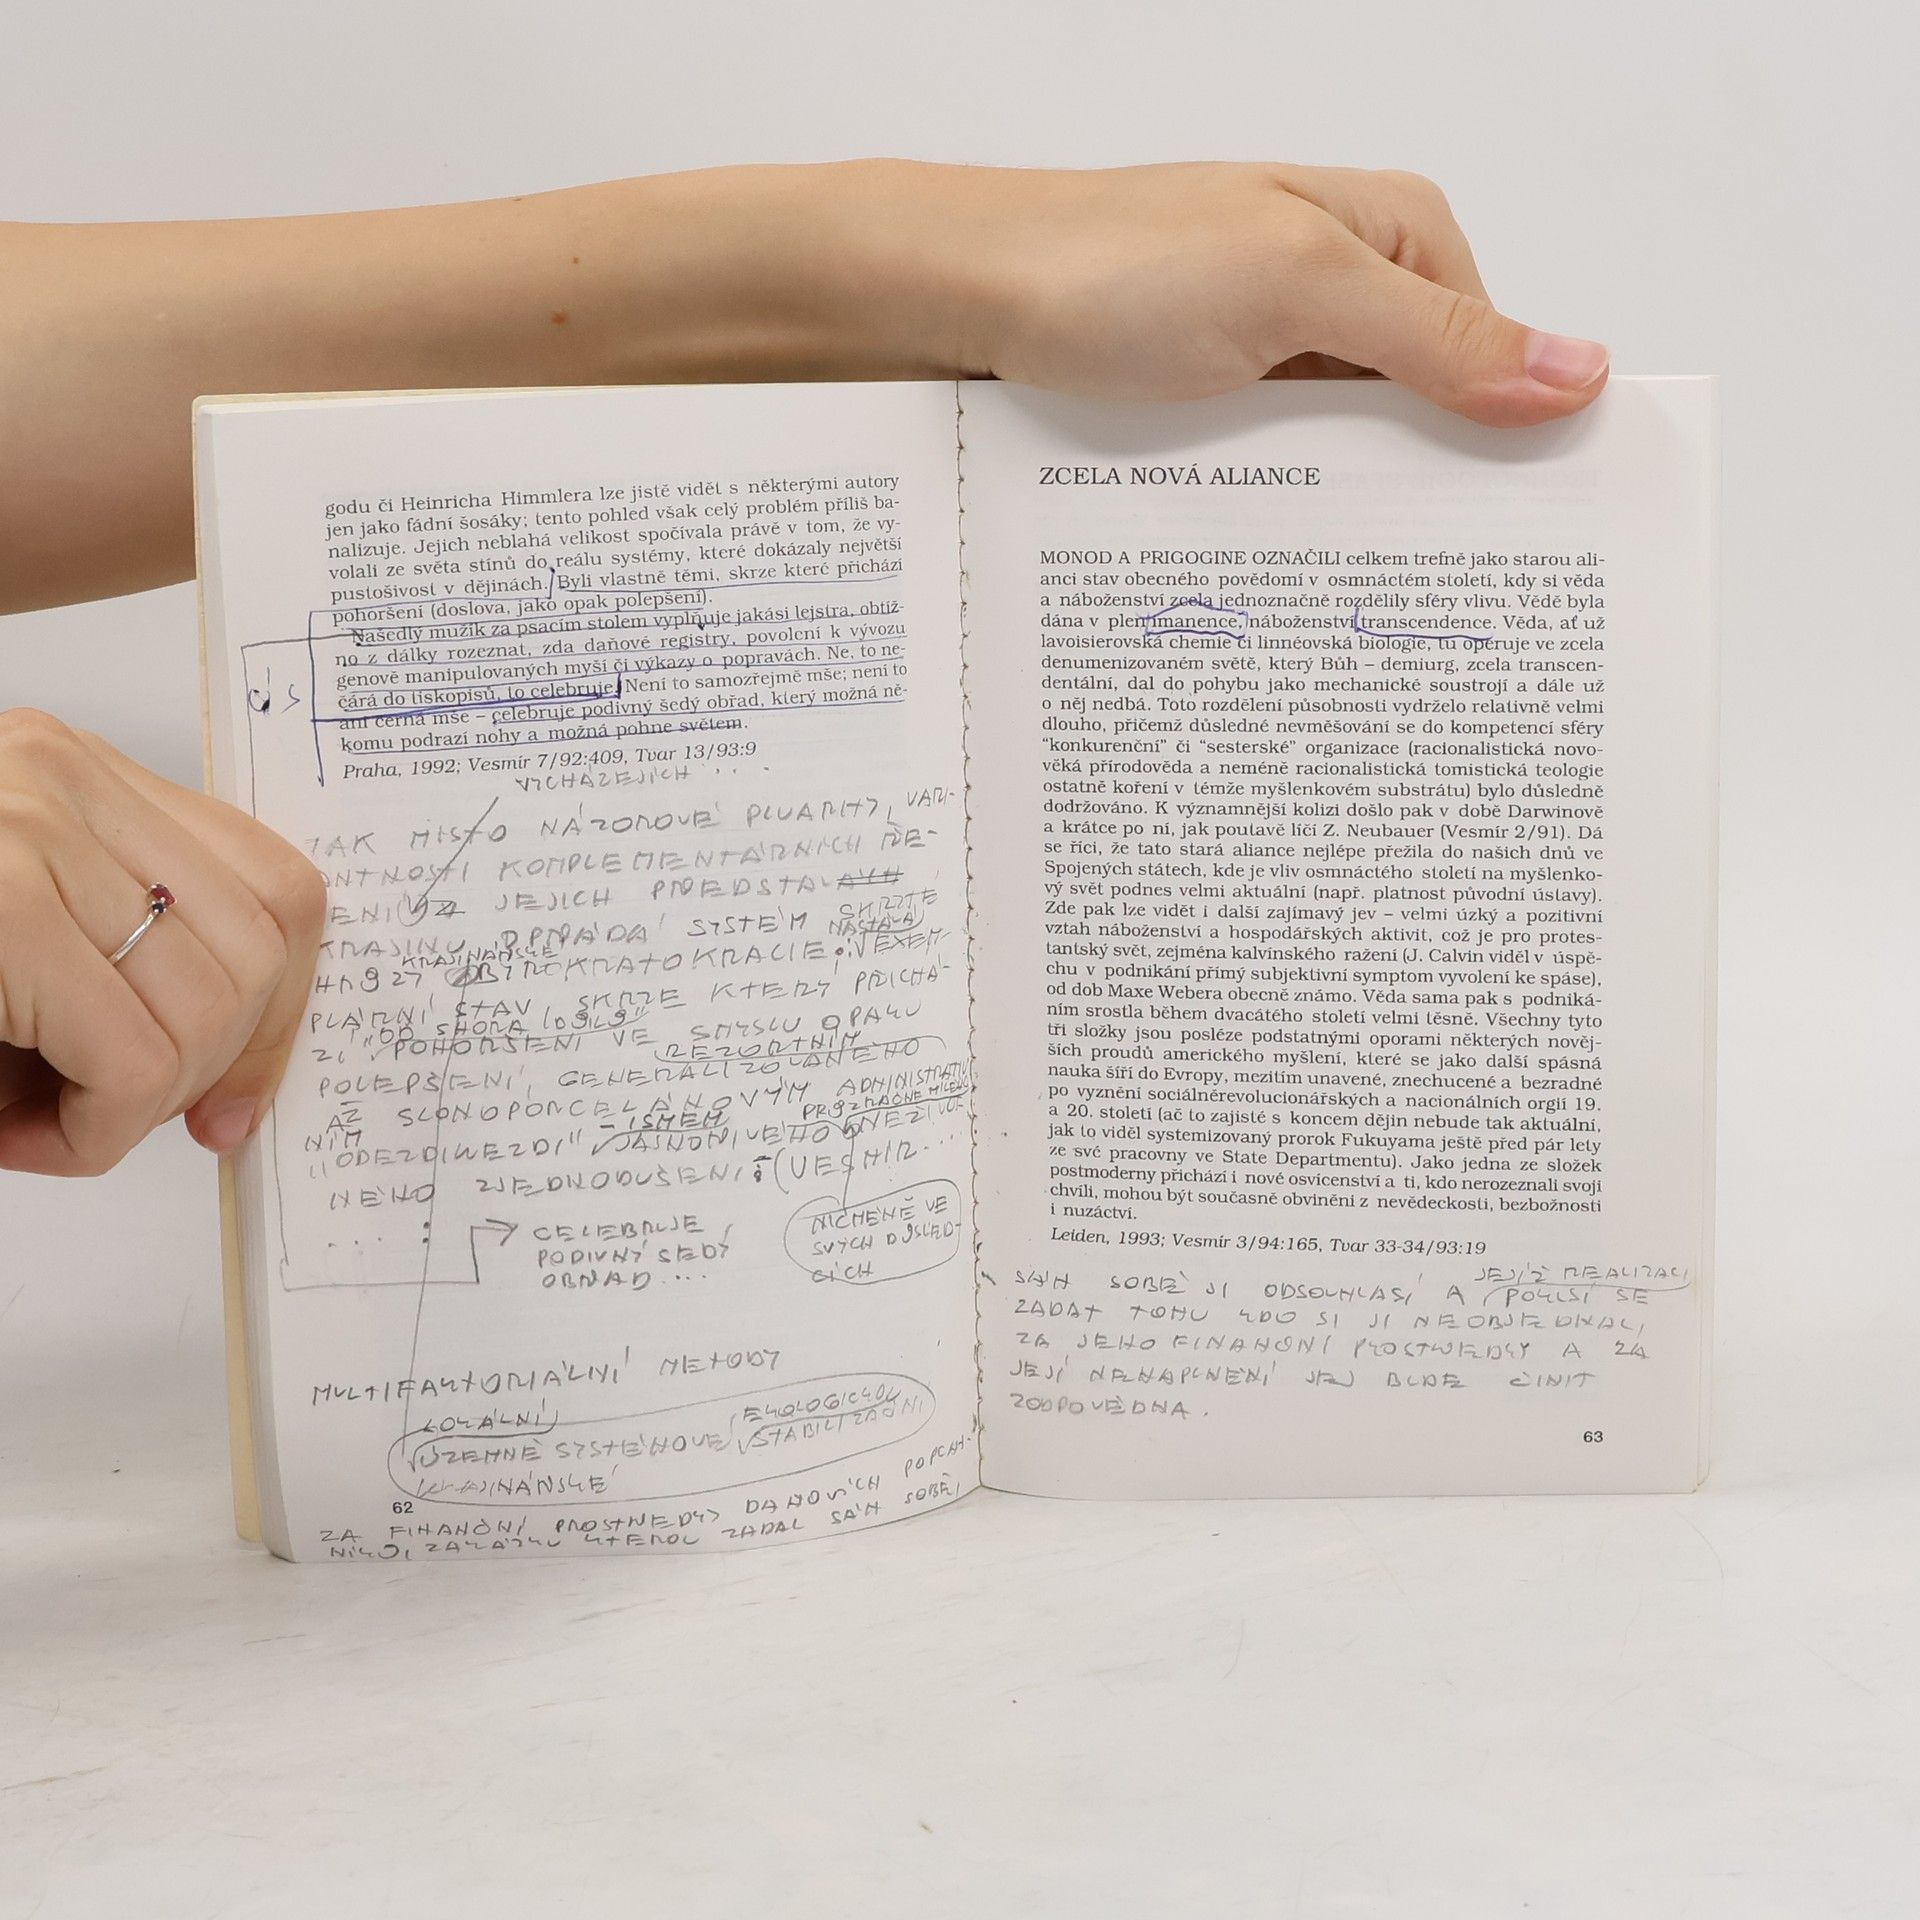 godu či Heinricha Himmlera lze jistě vidět s některými autory
jen jako fádní šosáky; tento pohled však celý problém příliš ba-
nalizuje. Jejich neblahá velikost spočívala právě v tom, že vy-
volali ze světa stínů do reálu systémy, které dokázaly největší
pustošivost v dějinách. Byli vlastně těmi, skrze které přichází
pohoršení (doslova, jako opak polepšení).
Našedlý mužík za psacím stolem vyplňuje jakási lejstra, obtíž-
no z dálky rozeznat, zda daňové registry, povolení k vývozu
genově manipulovaných myší či výkazy o popravách. Ne, to ne-
čárá do tiskopisů, to celebruje. Není to samozřejmě mše; není to
ani černá mše – celebruje podivný šedý obřad, který možná ně-
komu podrazí nohy a možná pohne světem.
Praha, 1992; Vesmír 7/92:409, Tvar 13/93:9
VYCHÁZEJÍCÍCH . . .
TAK MÍSTO NÁZOROVÉ PLURALITY, VARI-
ANTNOSTI KOMPLEMENTÁRNÍCH ŘE-
ŠENÍ JEJICH PŘEDSTAV
KRAJINU OPŘÁDÁ SYSTÉM SKRZTE
KRAJINÁŘSKÉ BYROKRATOKRACIE: NASTALÁ EXEM-
PLÁRNÍ STAV, SKRZE KTERÝ PŘICHÁ-
ZÍ "OD SHORA DOLŮ"
POHORŠENÍ VE SMYSLU OPAKU
POLEPŠENÍ, GENERALIZOVANÉHO REZORTNÍM
AŽ SLONOPORCELÁNOVÝM ADMINISTRATIV-
NÍM
"ODEZDIKEZDI" -ISMEM JASNOZŘIVÉHO
NÉHO ZJEDNODUŠENÍ: (VESMÍR. . . .
. . . . :
CELEBRUJE
PODIVNÝ ŠEDÝ
OBŘAD....
NICMÉNĚ VE
SVÝCH DŮSLED-
CÍCH
MULTIFAKTORIÁLNÍ METODY
LOKÁLNÍ
ÚZEMNĚ SYSTÉMOVÉ EKOLOGICKOU STABILIZAČNÍ
KRAJINÁŘSKÉ
62
ZA FINANČNÍ PROSTŘEDKY DAŇOVÝCH POPLAT-
NÍKŮ, ZAKÁZKU KTEROU ZADAL SÁM SOBĚ,
ZCELA NOVÁ ALIANCE
MONOD A PRIGOGINE OZNAČILI celkem trefně jako starou ali-
anci stav obecného povědomí v osmnáctém století, kdy si věda
a náboženství zcela jednoznačně rozdělily sféry vlivu. Vědě byla
dána v plen imanence, náboženství transcendence. Věda, ať už
lavoisierovská chemie či linnéovská biologie, tu operuje ve zcela
denumenizovaném světě, který Bůh – demiurg, zcela transcen-
dentální, dal do pohybu jako mechanické soustrojí a dále už
o něj nedbá. Toto rozdělení působnosti vydrželo relativně velmi
dlouho, přičemž důsledné nevměšování se do kompetencí sféry
“konkurenční” či “sesterské” organizace (racionalistická novo-
věká přírodověda a neméně racionalistická tomistická teologie
ostatně koření v témže myšlenkovém substrátu) bylo důsledně
dodržováno. K významnější kolizi došlo pak v době Darwinově
a krátce po ní, jak poutavě líčí Z. Neubauer (Vesmír 2/91). Dá
se říci, že tato stará aliance nejlépe přežila do našich dnů ve
Spojených státech, kde je vliv osmnáctého století na myšlenko-
vý svět podnes velmi aktuální (např. platnost původní ústavy).
Zde pak lze vidět i další zajímavý jev – velmi úzký a pozitivní
vztah náboženství a hospodářských aktivit, což je pro protes-
tantský svět, zejména kalvínského ražení (J. Calvin viděl v úspě-
chu v podnikání přímý subjektivní symptom vyvolení ke spáse),
od dob Maxe Webera obecně známo. Věda sama pak s podniká-
ním srostla během dvacátého století velmi těsně. Všechny tyto
tři složky jsou posléze podstatnými oporami některých nověj-
ších proudů amerického myšlení, které se jako další spásná
nauka šíří do Evropy, mezitím unavené, znechucené a bezradné
po vyznění sociálněrevolucionářských a nacionálních orgií 19.
a 20. století (ač to zajisté s koncem dějin nebude tak aktuální,
jak to viděl systemizovaný prorok Fukuyama ještě před pár lety
ze své pracovny ve State Departmentu). Jako jedna ze složek
postmoderny přichází i nové osvícenství a ti, kdo nerozeznali svoji
chvíli, mohou být současně obviněni z nevědeckosti, bezbožnosti
i nuzáctví.
Leiden, 1993; Vesmír 3/94:165, Tvar 33-34/93:19
SÁM SOBĚ JI ODSOUHLASÍ A JEJÍŽ REALIZACI POKUSÍ SE
ZADAT TOMU KDO SI JI NEOBJEDNAL,
ZA JEHO FINANČNÍ PROSTŘEDKY A ZA
JEJÍ NENAPLNĚNÍ JEJ BUDE ČINIT
ZODPOVĚDNA.
63